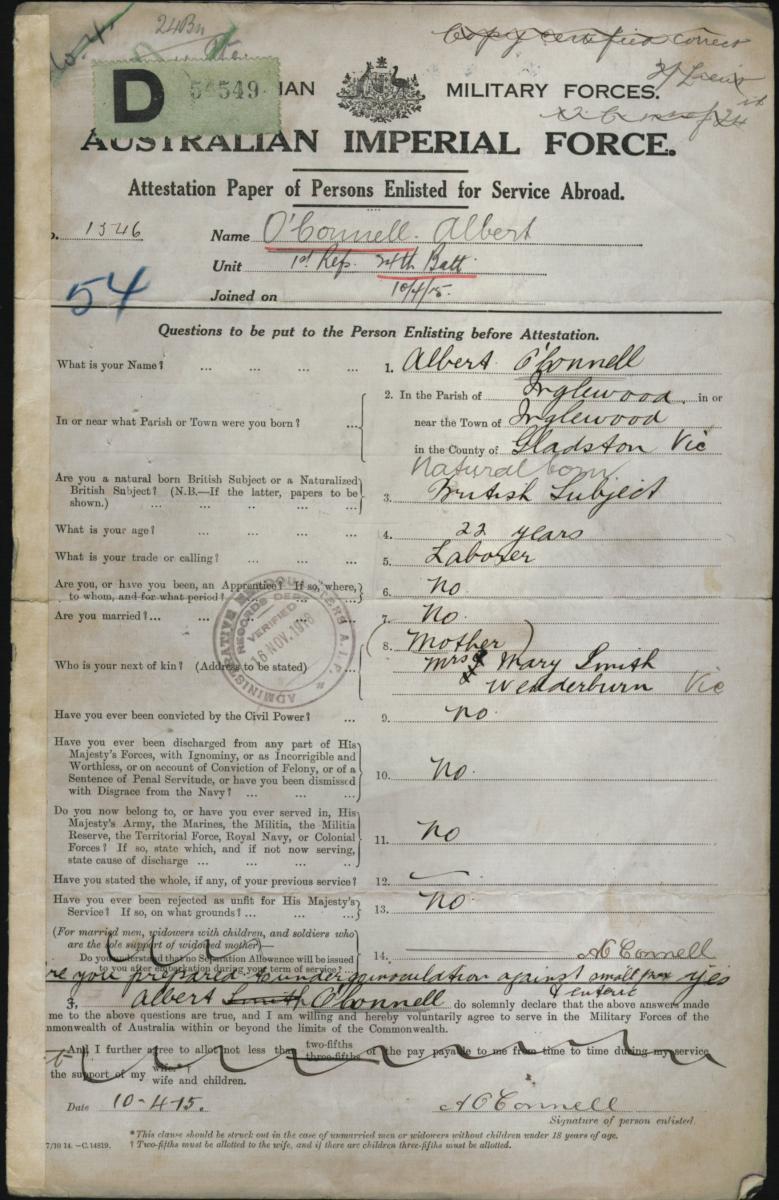 24 Bn
Copy certified correct
D 5 549
IAN MILITARY FORCES.
AUSTRALIAN IMPERIAL FORCE.
Attestation Paper of Persons Enlisted for Service Abroad.
o. 1546 Name O'Connell. Albert
Unit 1st Rep. 24th Batt.
54
Joined on 10/4/15.
Questions to be put to the Person Enlisting before Attestation.
What is your Name? ... ... ... ... 1. Albert O'Connell
In or near what Parish or Town were you born? ... 2. In the Parish of Inglewood in or
near the Town of Inglewood
in the County of Gladston Vic
Natural born
Are you a natural born British Subject or a Naturalized
British Subject? (N.B.—If the latter, papers to be
shown.) ... ... ... ... ... 3. British Subject
What is your age? ... ... ... ... 4. 22 years
What is your trade or calling? ... ... ... 5. Laborer
Are you, or have you been, an Apprentice? If so, where,
to whom, and for what period? ... ... ... 6. No
Are you married?... ... ... ... ... 7. No.
Who is your next of kin? (Address to be stated) ... 8. (Mother)
Mrs Mary Smith
Wenderburn Vic
ADMINISTRATIVE HEADQUARTERS A.I.F.
RECORDS
VERIFIED
6 NOV. 1918
Have you ever been convicted by the Civil Power? ... 9. No
Have you ever been discharged from any part of His
Majesty's Forces, with Ignominy, or as Incorrigible and
Worthless, or on account of Conviction of Felony, or of a
Sentence of Penal Servitude, or have you been dismissed
with Disgrace from the Navy? ... ... ... 10. No.
Do you now belong to, or have you ever served in, His
Majesty's Army, the Marines, the Militia, the Militia
Reserve, the Territorial Force, Royal Navy, or Colonial
Forces? If so, state which, and if not now serving,
state cause of discharge ... ... ... ... 11. No
Have you stated the whole, if any, of your previous service? 12.
Have you ever been rejected as unfit for His Majesty's
Service? If so, on what grounds? ... ... ... 13. No.
(For married men, widowers with children, and soldiers who
are the sole support of widowed mother)—
Do you understand that no Separation Allowance will be issued
to you after embarkation during your term of service? ... 14. A O'Connell
re you prepared to undergo inoculation against small pox yes
& enteric
I, Albert Smith O'Connell do solemnly declare that the above answers made
me to the above questions are true, and I am willing and hereby voluntarily agree to serve in the Military Forces of the
mmonwealth of Australia within or beyond the limits of the Commonwealth.
And I further agree to allot not less than two-fifths three-fifths of the pay payable to me from time to time during my service
the support of my wife.†
wife and children.
Date 10-4-15. A O'Connell
Signature of person enlisted.
* This clause should be struck out in the case of unmarried men or widowers without children under 18 years of age.
† Two-fifths must be allotted to the wife, and if there are children three-fifths must be allotted.
7/10 14.—C.14819.